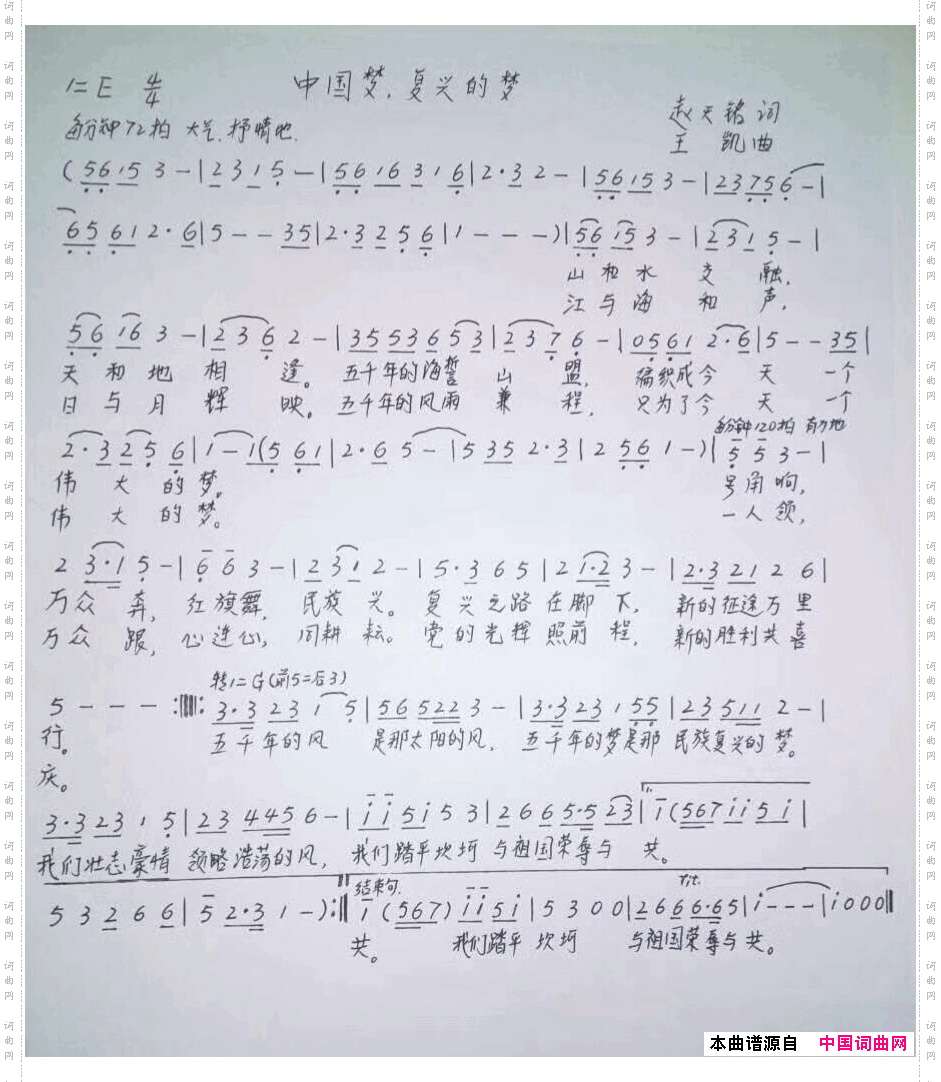 1=E 4/4 中国梦,复兴的梦
赵天铭 词
每分钟72拍 大气.抒情地.
王 凯曲
(5615 3-|2315-|5616 316|2·32-|5615 3-|23756-|
6561 2·6|5--35|2·3256|1---)|5615 3-|2315-|
山和水 交 融,
江与海 和 声,
5616 3-|2362-|35536 53|2376-|0561 2·6|5--35|
天和地 相 逢。 五千年的海誓 山 盟, 编织成今 天 一个
日与月 辉 映。 五千年的风雨 兼 程, 只为了今 天 一个
每分钟120拍 有力地
2·3256|1-1(561|2·65-|535 2·3|2561-)|553-|
伟 大 的梦。 号角响,
伟 大 的梦。 一人领,
2 3·1 5-|663-|2312-|5·365|2 1·2 3-|2·3 21 2 6|
万众 奔, 红旗舞, 民族 兴。 复兴之路在脚 下, 新的征途万里
万众 跟, 心连心, 同耕 耘。 党的光辉照前 程, 新的胜利共喜
转1=G(前5=后3)
5---:||:3·3 23 1 5|56 522 3-|3·3 23 1 55|23 511 2-|
行。 五千年的风 是那太阳的风, 五千年的梦是那 民族复兴的梦。
庆。
3·3 23 1 5|23 445 6-|i i 5 i 5 3|2 6 6 5·5 23|i(567 i i 5 i|
我们壮志豪情 领略浩荡的风, 我们踏平坎坷 与祖国荣辱与 共。
结束句. rit.
5 3 2 6 6|5 2·3 1-):||i(567) i i 5 i|5 3 0 0|2 6 6 6·6 5|i---|i000||
共。 我们踏平 坎坷 与祖国荣辱与共。
本曲谱源自 中国词曲网